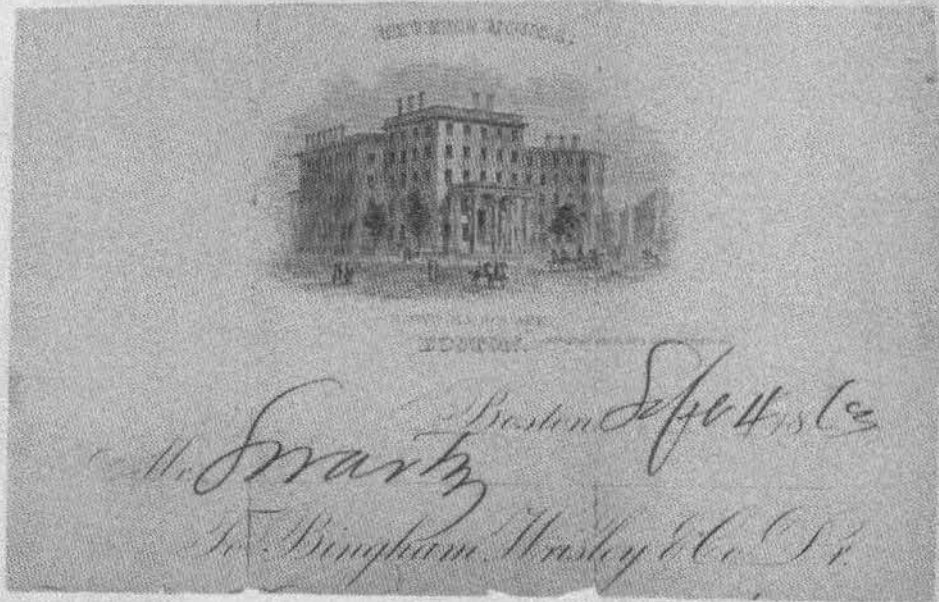 REVERE HOUSE.
BOSTON.
Boston Sept 4 1863
Mr Swartz
To Bingham, Wrisley & Co. Dr.